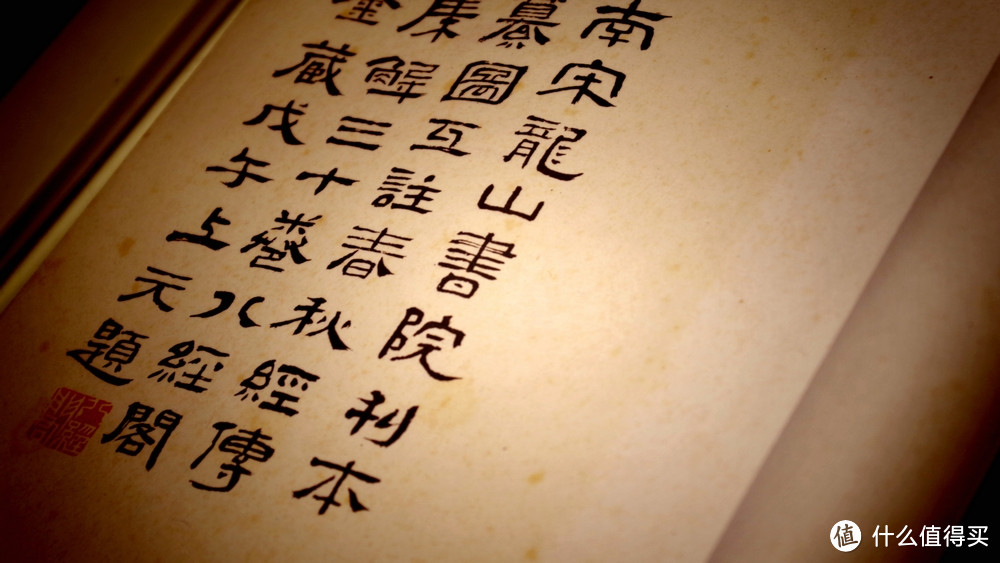 南宋龍山書院刊本
纂圖互註春秋經傳
集解三十卷八經閣
藏戊午上元題
值 什么值得买